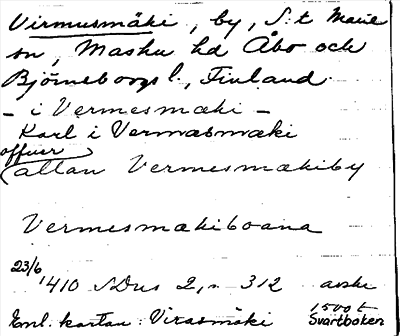 Virmusmäki, by, S:t Marie
sn, Masku hd Åbo och
Björneborgs l., Finland
- i Vermesmæki -
Karl i Vermæsmæki
offuer
allan Vermesmækiby
Vermesmækiboana
23/6
1410 SDns 2, n 312 avskr
1500 t
Enl. kartan: Virasmäki Svartboken